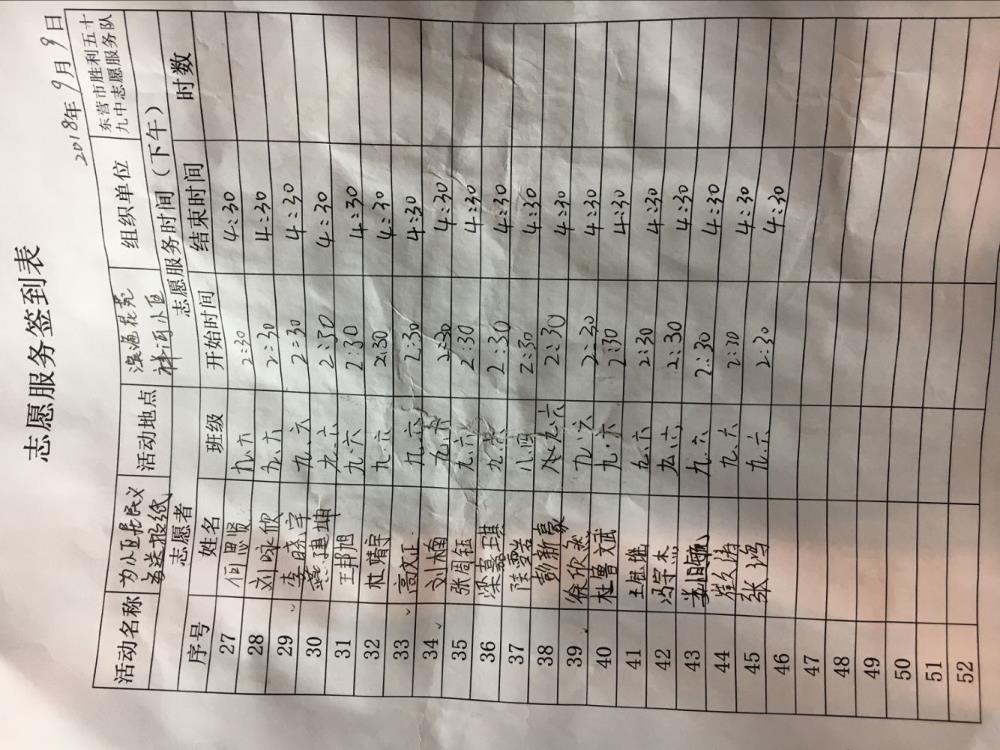 志愿服务签到表
2018年9月9日
活动名称 为小区居民义务送报纸 活动地点 滨海花苑祥河小区 组织单位 东营市胜利五十九中志愿服务队
志愿者 志愿服务时间（下午）
序号 姓名 班级 开始时间 结束时间 时数
27 何思贤 九.六 2:30 4:30
28 刘 欣 九.六 2:30 4:30
29 李晓宇 九.六 2:30 4:30
30 燕建坤 九.六 2:30 4:30
31 王邦旭 九.六 2:30 4:30
32 杜婧宇 九.六 2:30 4:30
33 高文正 九.六 2:30 4:30
34 刘楠 九.六 2:30 4:30
35 张周钰 九.六 2:30 4:30
36 梁嘉琪 九.六 2:30 4:30
37 陈雪 八.四 2:30 4:30
38 彭新豪 九.六 2:30 4:30
39 徐欣然 九.六 2:30 4:30
40 杜鲁文斌 九.六 2:30 4:30
41 王 九.六 2:30 4:30
42 冯宗杰 九.六 2:30 4:30
43 九.六 2:30 4:30
44 崔 涛 九.六 2:30 4:30
45 张鸿 九.六 2:30 4:30
46 4:30
47
48
49
50
51
52